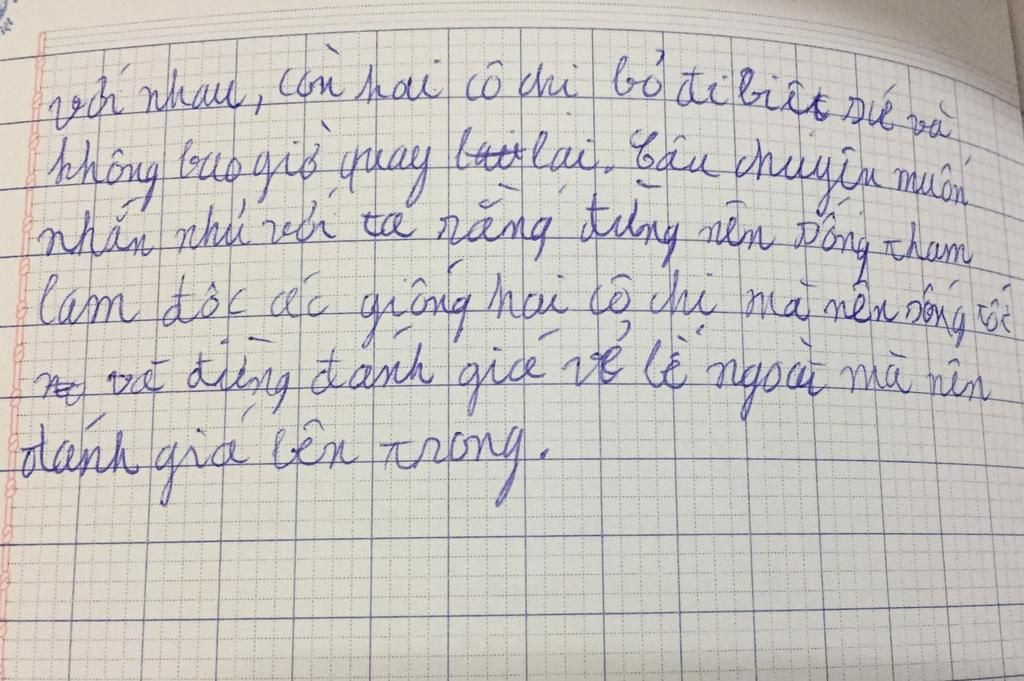 với nhau, còn hai cô chị bỏ đi biệt xứ và
không bao giờ quay lại. Câu chuyện muốn
nhắn nhủ với ta rằng đừng nên sống tham
lam độc ác giống hai cô chị mà nên sống tốt
và đừng đánh giá vẻ bề ngoài mà nên
đánh giá bên trong.